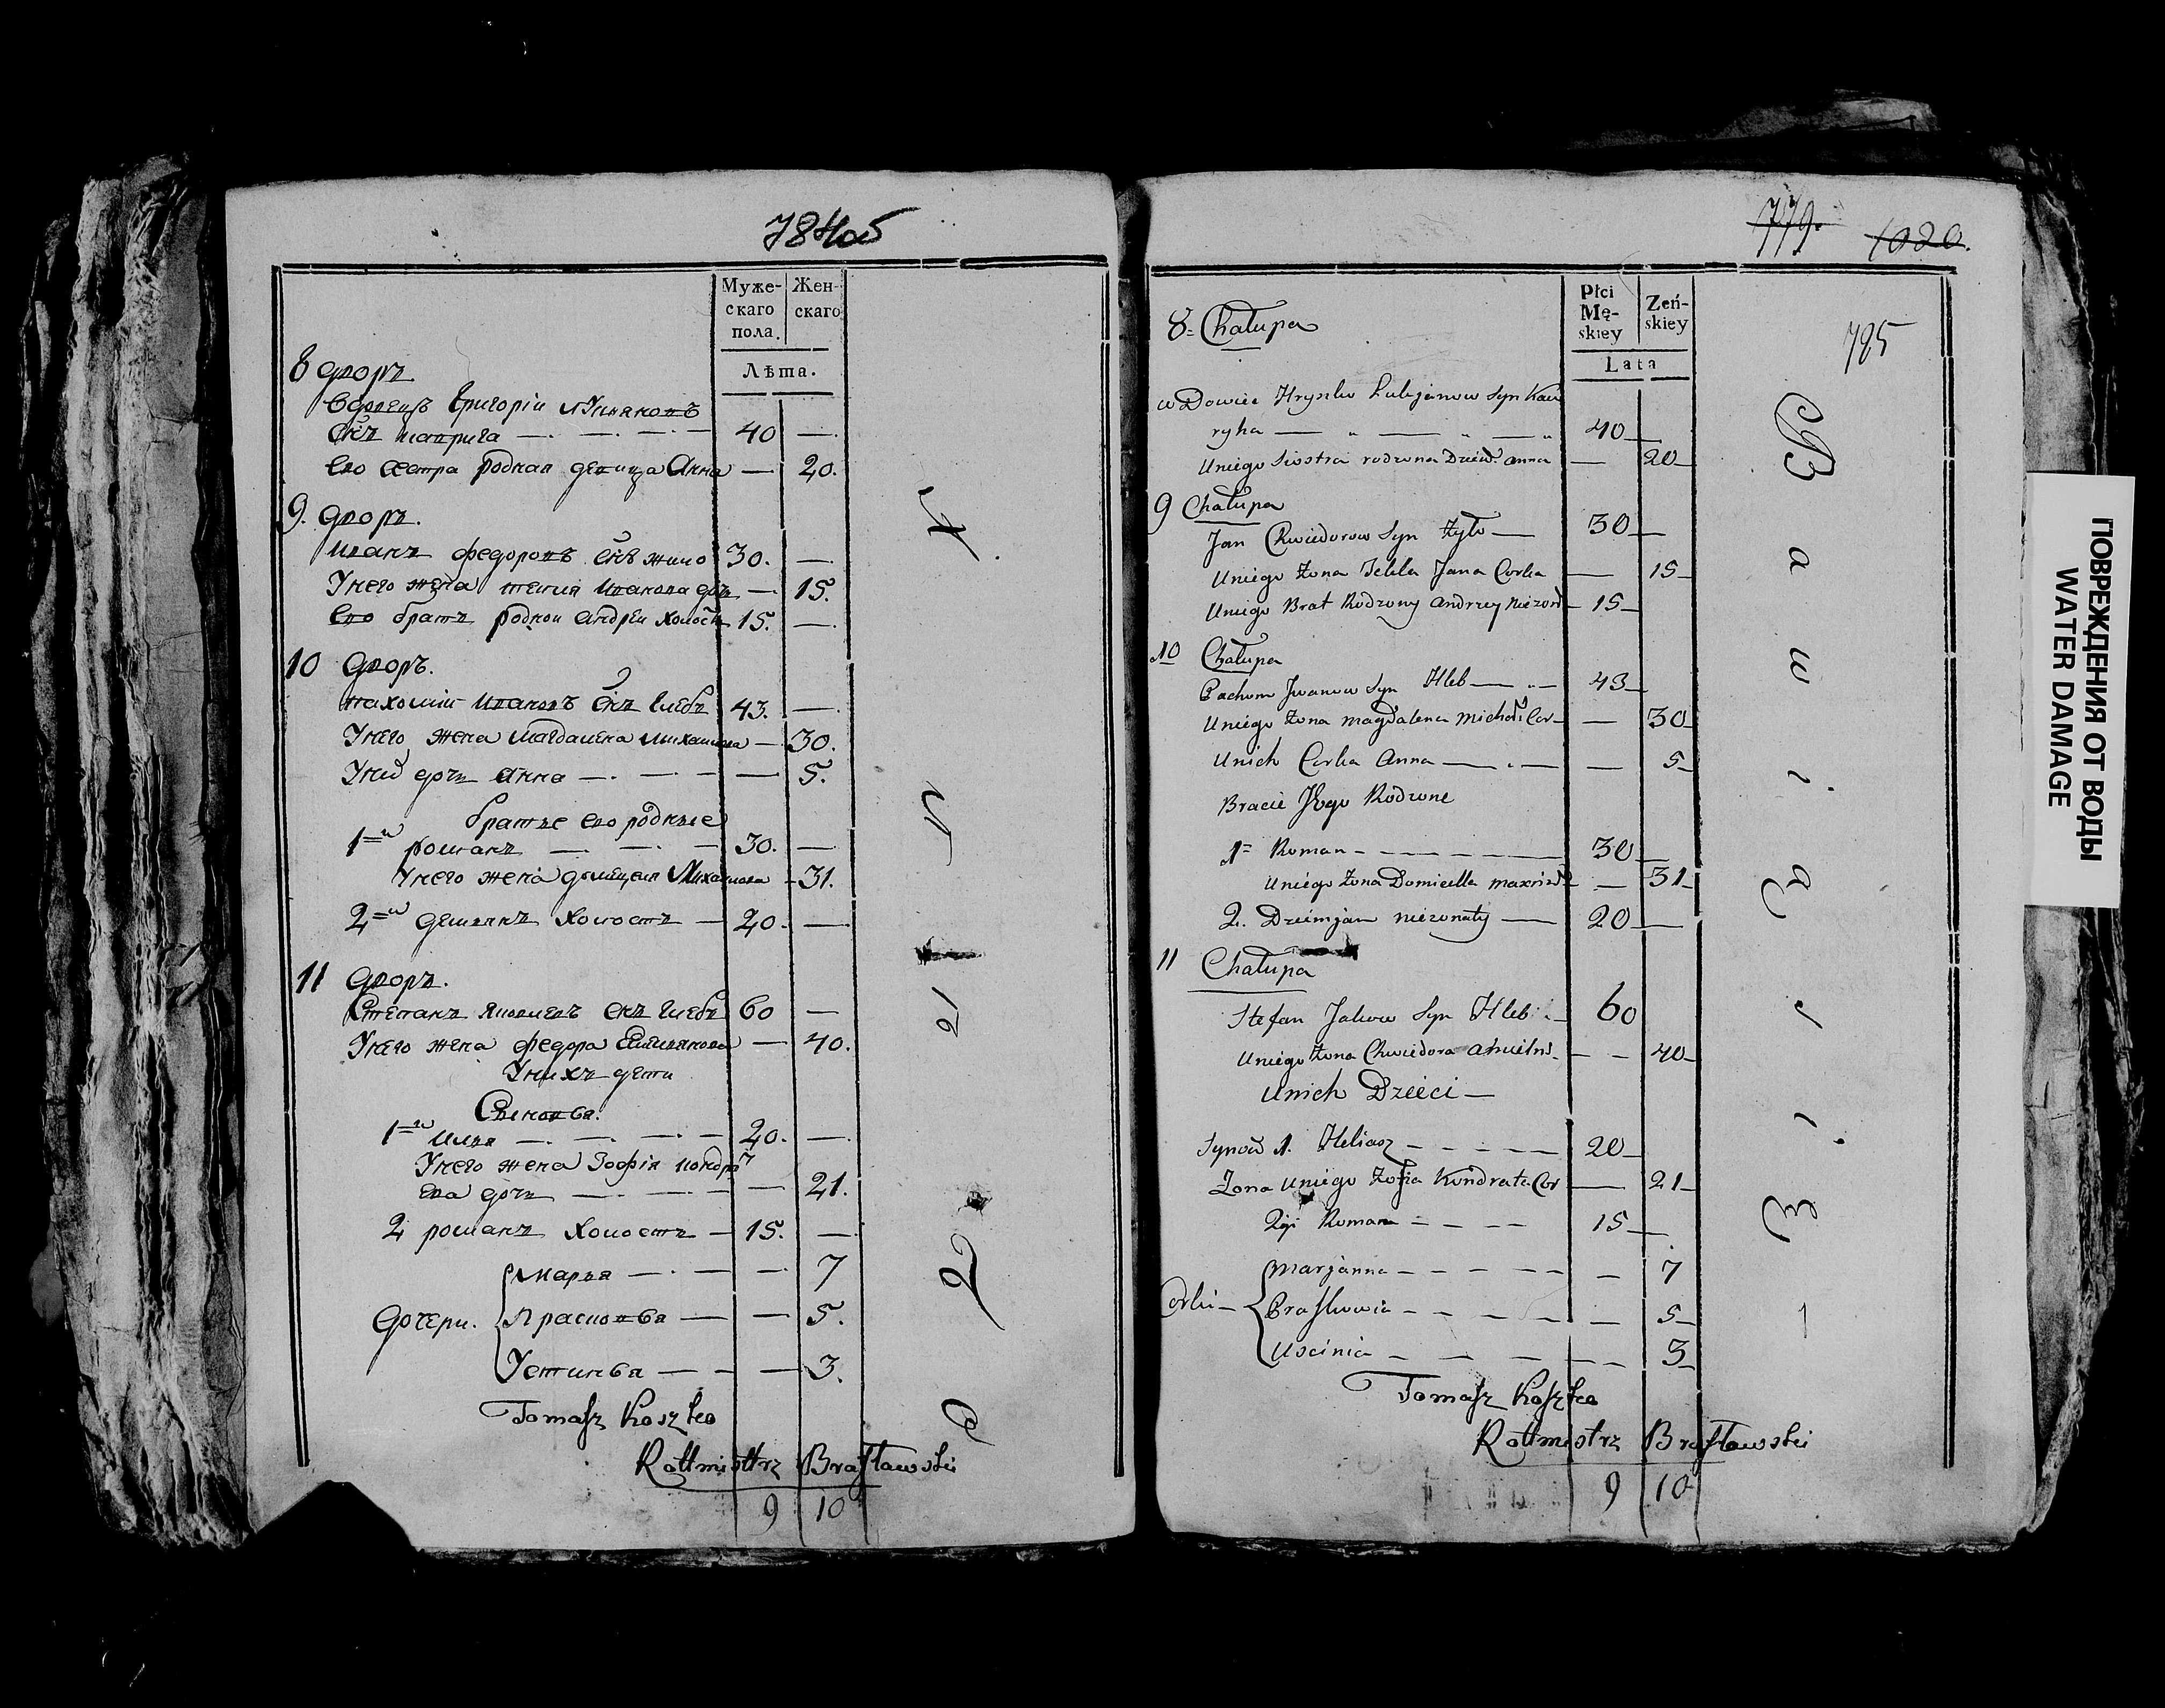 784об
Муже-
скаго
пола.
Жен-
скаго
Лѣта.
8 дворъ
вдовецъ Григорій
снъ 40 —
ево сестра родная девица Анна — 20.
9. дворъ.
иванъ федоровъ снъ жило 30. —
Унего жена текля иванова дочь — 15.
ево братъ родной андрей холостъ 15. —
10 дворъ.
пахомій ивановъ снъ глебъ 43. —
Унего жена магдалена михайлова — 30.
Унихъ дочь анна — 5.
братье ево родные
1й романъ — 30. —
Унего жена домицеля 31.
2й демьянъ холостъ — 20. —
11 дворъ.
Степанъ яковлевъ снъ глебъ 60 —
Унего жена федора емельянова — 40.
Унихъ дети
Сыновья.
1й илья — 20. —
Унего жена Зофія кондрать
ева дочь — 21.
2 романъ холостъ — 15. —
марья — 7
дочери. Прасковья — 5.
Устинья — 3.
Tomasz Koszko
Rottmistrz Brasławski
9 10
779.
1020.
785
Płci
Mę-
skiey
Żeń-
skiey
Lata
8 Chałupa
wDowiec Hryszko syn Kaw
ryha — 40 —
Uniego Siostra rodzona Dziew. anna — 20
9 Chałupa
Jan Chwiedorow Syn Żyło — 30 —
Uniego Żona Tekla Jana Corka — 15
Uniego Brat Rodzony andrzey nieżon — 15
10 Chałupa
Pachom Jwanow Syn Hleb — 43
Uniego żona magdalena michał Cor — 30
Unich Corka Anna — 5
Bracie Jego Rodzone
1 Roman — 30
Uniego żona Domicella — 31
2. Dziemjan nieżonaty — 20 —
11 Chałupa
Stefan Jakow Syn Hleb — 60
Uniego Żona Chwiedora — 40
Unich Dzieci —
Synow 1. Heliasz — 20
Żona Uniego Zofia Kondrata Cor — 21
2gi Roman — 15 —
Marjanna — 7
Corki — Praskowia — 5
Uscinia — 3
Tomasz Koszko
Rottmistrz Brasławski
9 10
ПОВРЕЖДЕНИЯ ОТ ВОДЫ
WATER DAMAGE